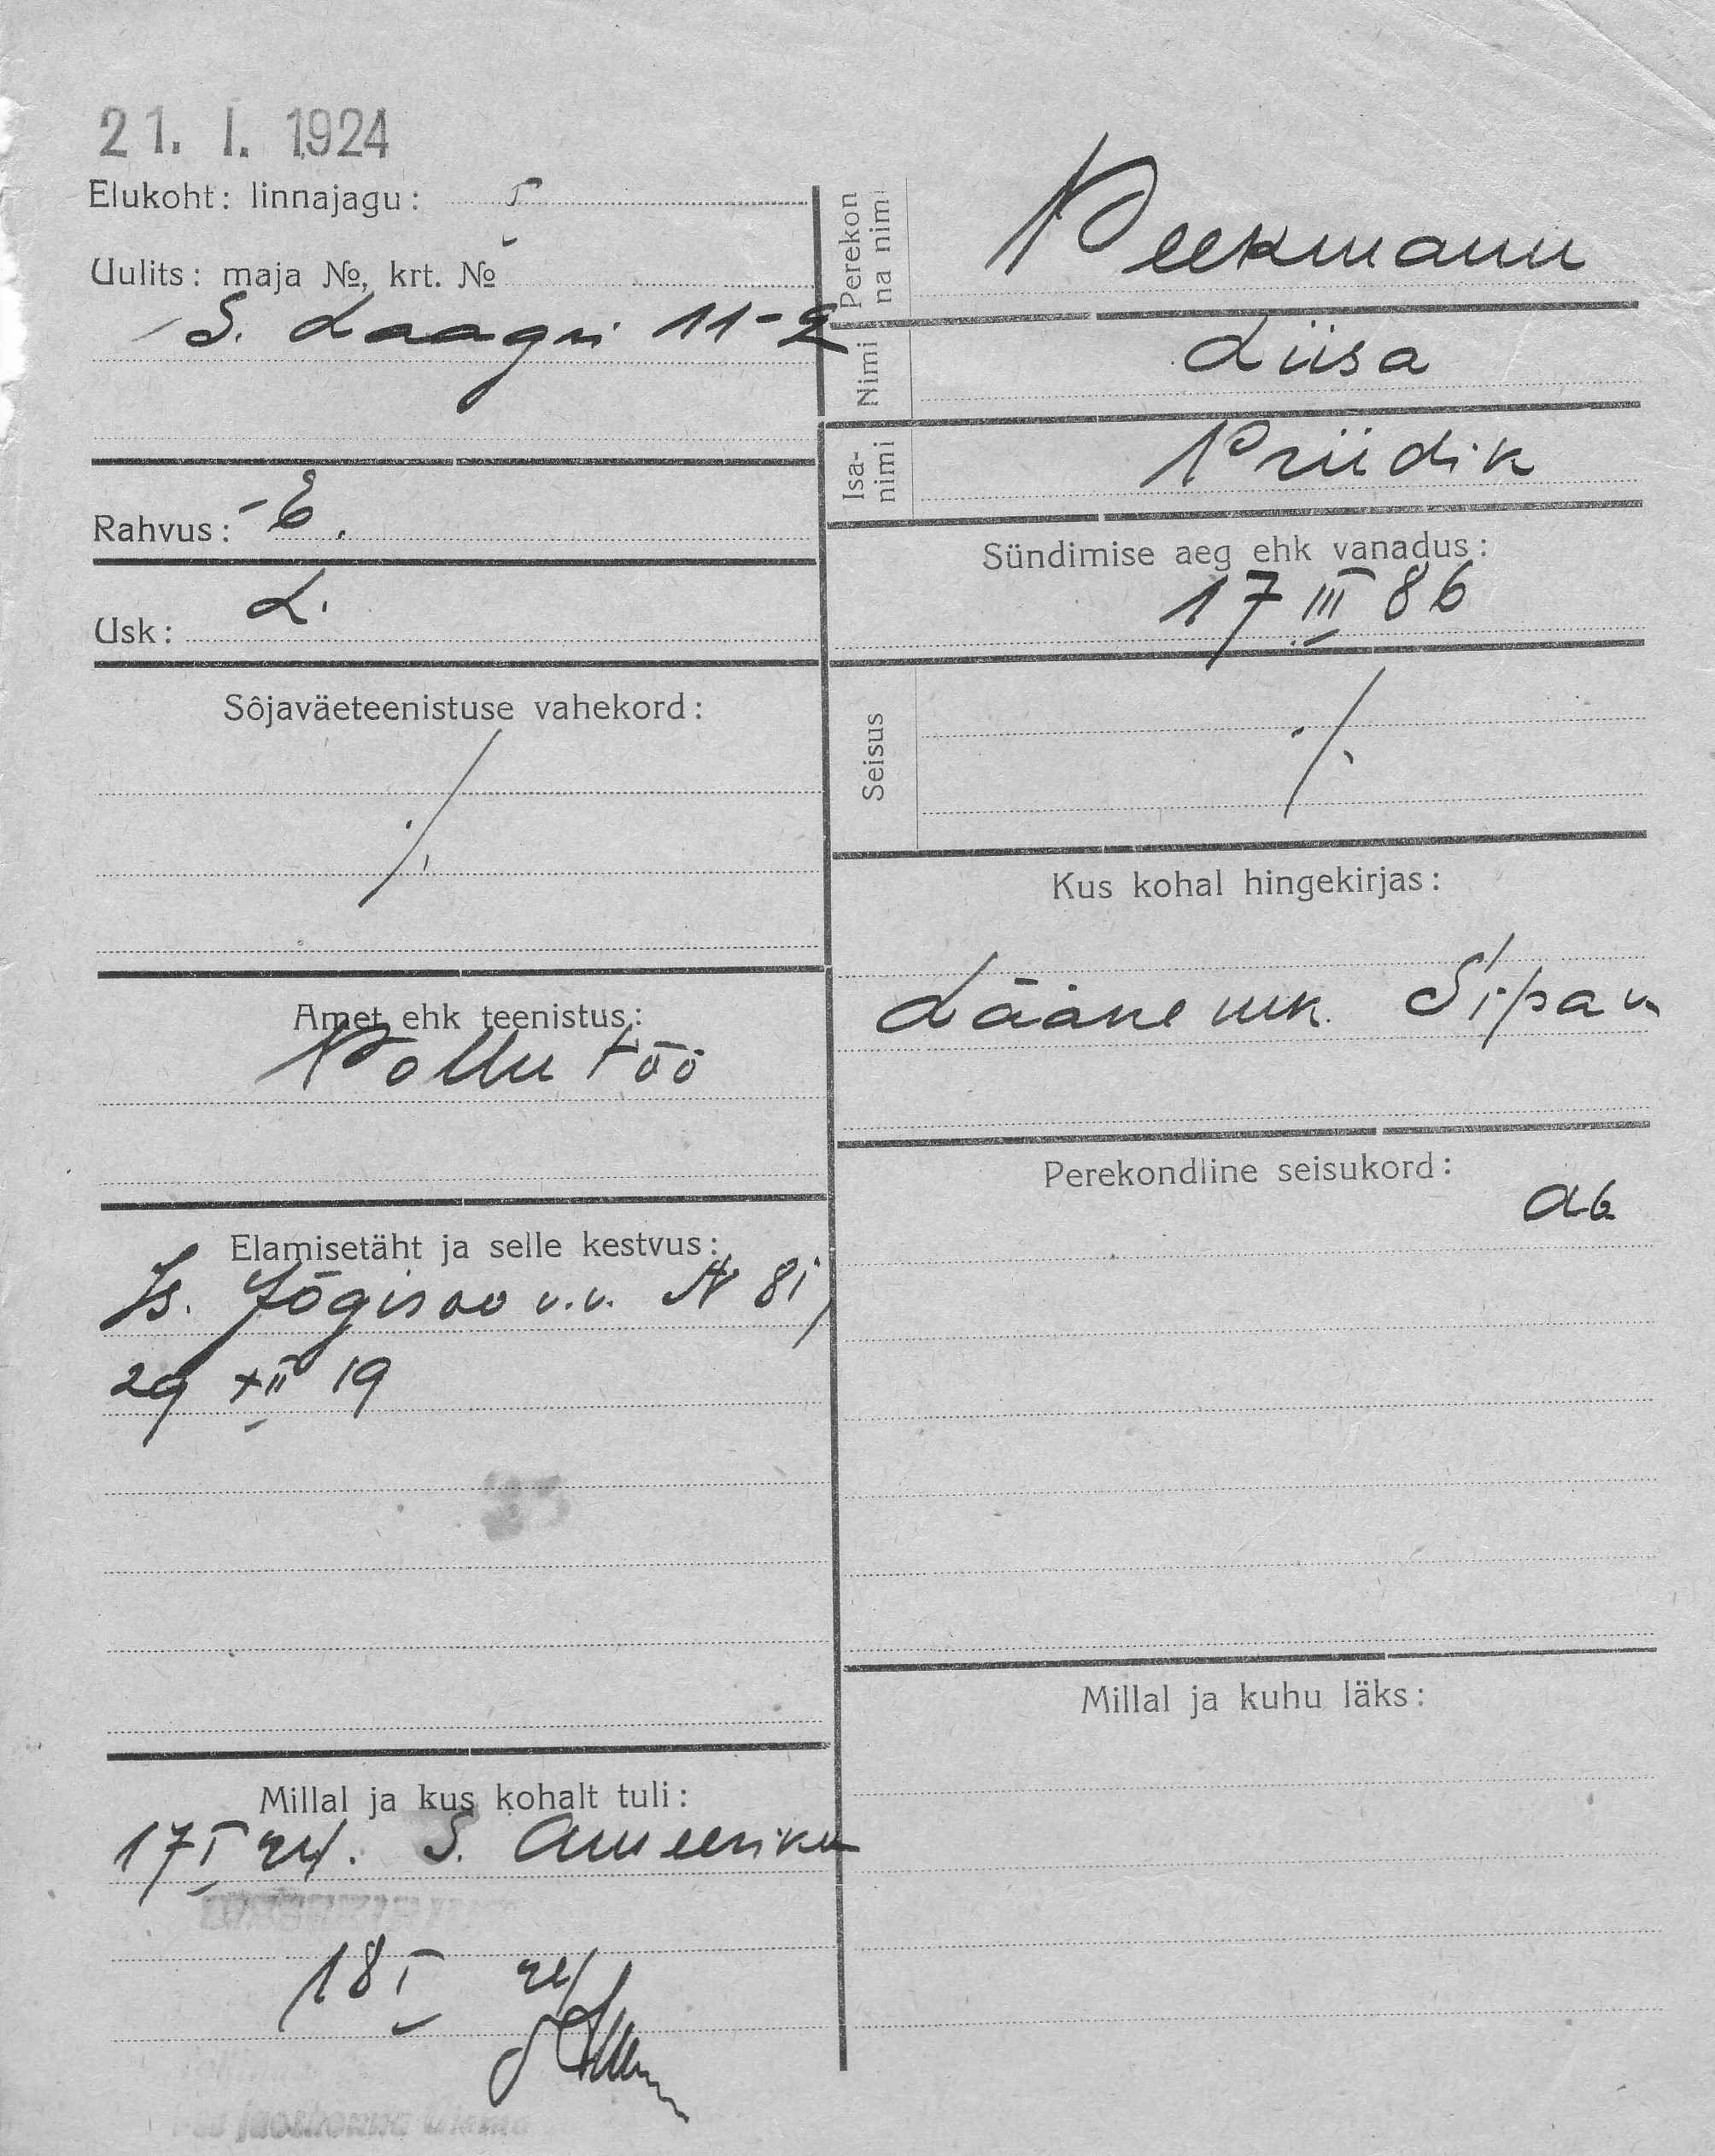 21. I. 1924
Elukoht: linnajagu: I
Uulits: maja №, krt. №
S. Laagri 11-2
Rahvus: E.
Usk: L.
Sôjaväeteenistuse vahekord:
./.
Amet ehk teenistus:
Põllu töö
Elamisetäht ja selle kestvus:
Is. Jõgisoo v.v. N 81
29 XII 19
Millal ja kus kohalt tuli:
17 I 24. S. Ameerika
18 I 24
Perekon
na nimi
Peekmann
Nimi
Liisa
Isa-
nimi
Priidik
Sündimise aeg ehk vanadus:
17 III 86
Seisus
./.
Kus kohal hingekirjas:
Lääne mk. Sipa v.
Perekondline seisukord:
ab
Millal ja kuhu läks: